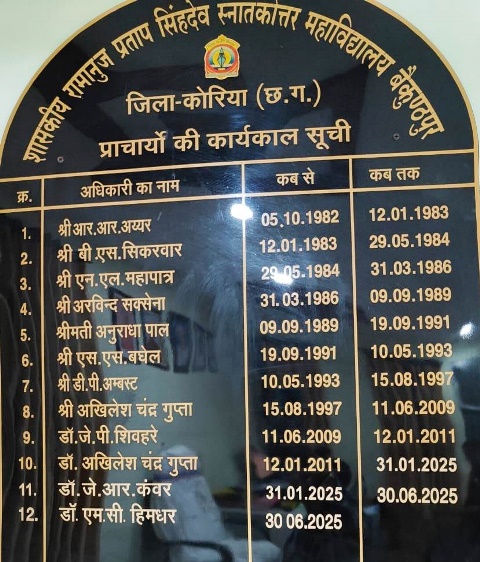 शासकीय रामानुज प्रताप सिंहदेव स्नातकोत्तर महाविद्यालय बैकुण्ठपुर
जिला-कोरिया (छ.ग.)
प्राचार्यो की कार्यकाल सूची
क्र. अधिकारी का नाम कब से कब तक
1. श्री आर.आर.अय्यर 05.10.1982 12.01.1983
2. श्री बी.एस.सिकरवार 12.01.1983 29.05.1984
3. श्री एन.एल.महापात्र 29.05.1984 31.03.1986
4. श्री अरविन्द सक्सेना 31.03.1986 09.09.1989
5. श्रीमती अनुराधा पाल 09.09.1989 19.09.1991
6. श्री एस.एस.बघेल 19.09.1991 10.05.1993
7. श्री डी.पी.अम्बस्ट 10.05.1993 15.08.1997
8. श्री अखिलेश चंद्र गुप्ता 15.08.1997 11.06.2009
9. डॉ.जे.पी.शिवहरे 11.06.2009 12.01.2011
10. डॉ. अखिलेश चंद्र गुप्ता 12.01.2011 31.01.2025
11. डॉ.जे.आर.कंवर 31.01.2025 30.06.2025
12. डॉ. एम.सी. हिमधर 30 06.2025